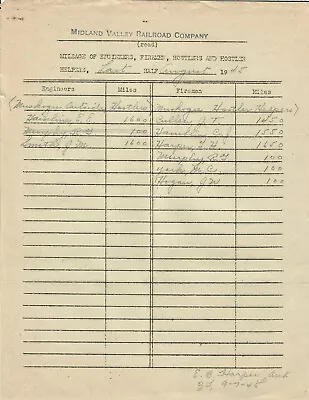 MIDLAND VALLEY RAILROAD COMPANY
(road)
MILEAGE OF ENGINEERS, FIREMEN, HOSTLERS AND HOSTLER
HELPERS, Last HALF August 1945
Engineers Miles Fireman Miles
(Muskogee Outside Hostlers) (Muskogee Hostler Helpers)
1600 Cullen J. T. 1450
Murphy R. T. 100 Hamblin C. J. 1550
Smith J. M. 1600 Harper F. H. 1650
Murphy R. T. 100
York M. C. 100
Hogan J. W. 100
E. B. Harper
9-7-45